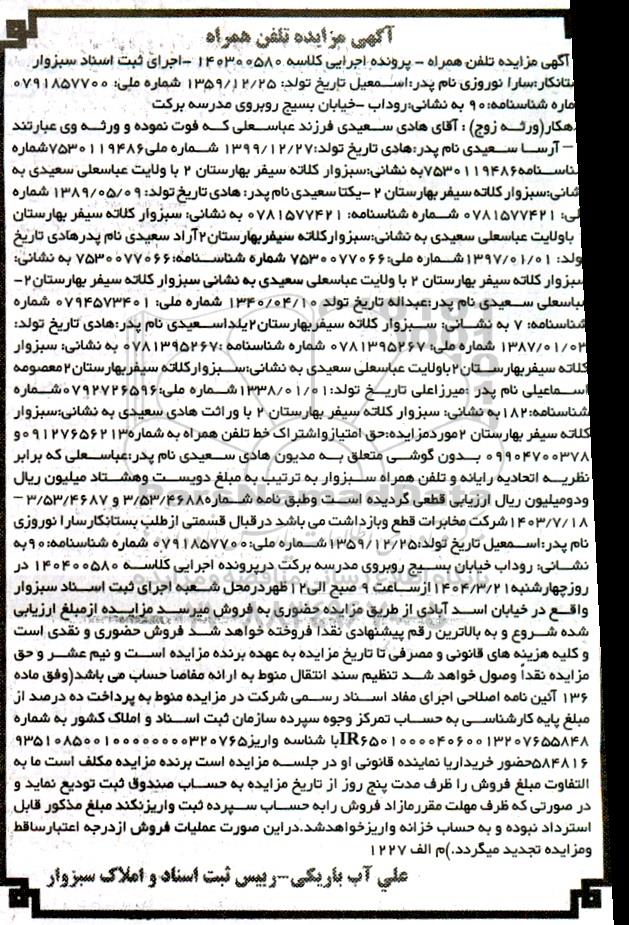 آگهی مزایده تلفن همراه
آگهی مزایده تلفن همراه - پرونده اجرایی کلاسه ۱۴۰۳۰۰۵۸۰ -اجرای ثبت اسناد سبزوار
ستانکار:سارا نوروزی نام پدر:اسمعیل تاریخ تولد: ۱۳۵۹/۱۲/۲۵ شماره ملی: ۰۷۹۱۸۵۷۷۰۰
ماره شناسنامه:۹۰ به نشانی:روداب -خیابان بسیج روبروی مدرسه برکت
دهکار(ورثه زوج) : آقای هادی سعیدی فرزند عباسعلی که فوت نموده و ورثه وی عبارتند
- آرسا سعیدی نام پدر:هادی تاریخ تولد:۱۳۹۹/۱۲/۲۷ شماره ملی۷۵۳۰۱۱۹۴۸۶شماره
ناسنامه۷۵۳۰۱۱۹۴۸۶به نشانی:سبزوار کلاته سیفر بهارستان ۲ با ولایت عباسعلی سعیدی به
شانی:سبزوار کلاته سیفر بهارستان ۲ -یکتا سعیدی نام پدر: هادی تاریخ تولد: ۱۳۸۹/۰۵/۰۹ شماره
لی: ۰۷۸۱۵۷۷۴۲۱ شماره شناسنامه: ۰۷۸۱۵۷۷۴۲۱ به نشانی: سبزوار کلاته سیفر بهارستان
باولایت عباسعلی سعیدی به نشانی:سبزوارکلاته سیفربهارستان۲آراد سعیدی نام پدرهادی تاریخ
ولد: ۱۳۹۷/۰۱/۰۱شماره ملی: ۷۵۳۰۰۷۷۰۶۶ شماره شناسنامه:۷۵۳۰۰۷۷۰۶۶ به نشانی:
سبزوار کلاته سیفر بهارستان ۲ با ولایت عباسعلی سعیدی به نشانی سبزوار کلاته سیفر بهارستان۲-
عباسعلی سعیدی نام پدر:عبداله تاریخ تولد ۱۳۴۰/۰۴/۱۰ شماره ملی: ۰۷۹۴۵۷۳۴۰۱ شماره
شناسنامه: ۷ به نشانی: سبزوار کلاته سیفربهارستان۲یلداسعیدی نام پدر:هادی تاریخ تولد:
۱۳۸۷/۰۱/۰۳ شماره ملی: ۰۷۸۱۳۹۵۲۶۷ شماره شناسنامه :۰۷۸۱۳۹۵۲۶۷ به نشانی: سبزوار
کلاته سیفربهارستان۲باولایت عباسعلی سعیدی به نشانی:سبزوارکلاته سیفربهارستان۲معصومه
اسماعیلی نام پدر :میرزاعلی تاریخ تولد:۱۳۳۸/۰۱/۰۱شماره ملی:۰۷۹۲۷۲۶۵۹۶شماره
شناسنامه:۱۸۲به نشانی: سبزوار کلاته سیفر بهارستان ۲ با وراثت هادی سعیدی به نشانی:سبزوار
کلاته سیفر بهارستان ۲موردمزایده:حق امتیازواشتراک خط تلفن همراه به شماره۰۹۱۲۷۶۵۶۲۱۳و
۰۹۹۰۴۷۰۰۳۷۸ بدون گوشی متعلق به مدیون هادی سعیدی نام پدر:عباسعلی که برابر
نظریه اتحادیه رایانه و تلفن همراه سبزوار به ترتیب به مبلغ دویست وهشتاد میلیون ریال
ودومیلیون ریال ارزیابی قطعی گردیده است وطبق نامه شماره۳/۵۳/۴۶۸۸ و ۳/۵۳/۴۶۸۷ -
۱۴۰۳/۷/۱۸شرکت مخابرات قطع وبازداشت می باشد درقبال قسمتی ازطلب بستانکارسارا نوروزی
نام پدر:اسمعیل تاریخ تولد:۱۳۵۹/۱۲/۲۵شماره ملی:۰۷۹۱۸۵۷۷۰۰ شماره شناسنامه:۹۰به
نشانی: روداب خیابان بسیج روبروی مدرسه برکت درپرونده اجرایی کلاسه ۱۴۰۴۰۰۵۸۰ در
روزچهارشنبه۱۴۰۴/۳/۲۱ ازساعت ۹ صبح الی۱۲ظهردرمحل شعبه اجرای ثبت اسناد سبزوار
واقع در خیابان اسد آبادی از طریق مزایده حضوری به فروش میرسد مزایده ازمبلغ ارزیابی
شده شروع و به بالاترین رقم پیشنهادی نقدا فروخته خواهد شد فروش حضوری و نقدی است
و کلیه هزینه های قانونی و مصرفی تا تاریخ مزایده به عهده برنده مزایده است و نیم عشر و حق
مزایده نقداً وصول خواهد شد تنظیم سند انتقال منوط به ارائه مفاصا حساب می باشد(وفق ماده
۱۳۶ آئین نامه اصلاحی اجرای مفاد اسناد رسمی شرکت در مزایده منوط به پرداخت ده درصد از
مبلغ پایه کارشناسی به حساب تمرکز وجوه سپرده سازمان ثبت اسناد و املاک کشور به شماره
IR۶۵۰۱۰۰۰۰۴۰۶۰۰۱۳۲۰۷۶۵۵۸۴۸با شناسه واریز۹۳۵۱۰۸۵۰۰۱۰۰۰۰۰۰۰۰۰۳۲۰۷۶۵
۵۸۴۸۱۶حضور خریداریا نماینده قانونی او در جلسه مزایده است برنده مزایده مکلف است ما به
التفاوت مبلغ فروش را ظرف مدت پنج روز از تاریخ مزایده به حساب صندوق ثبت تودیع نماید و
در صورتی که ظرف مهلت مقررمازاد فروش رابه حساب سپرده ثبت واریزنکند مبلغ مذکور قابل
استرداد نبوده و به حساب خزانه واریزخواهدشد.دراین صورت عملیات فروش ازدرجه اعتبارساقط
ومزایده تجدید میگردد.)م الف ۱۲۲۷
علی آب باریکی-رییس ثبت اسناد و املاک سبزوار